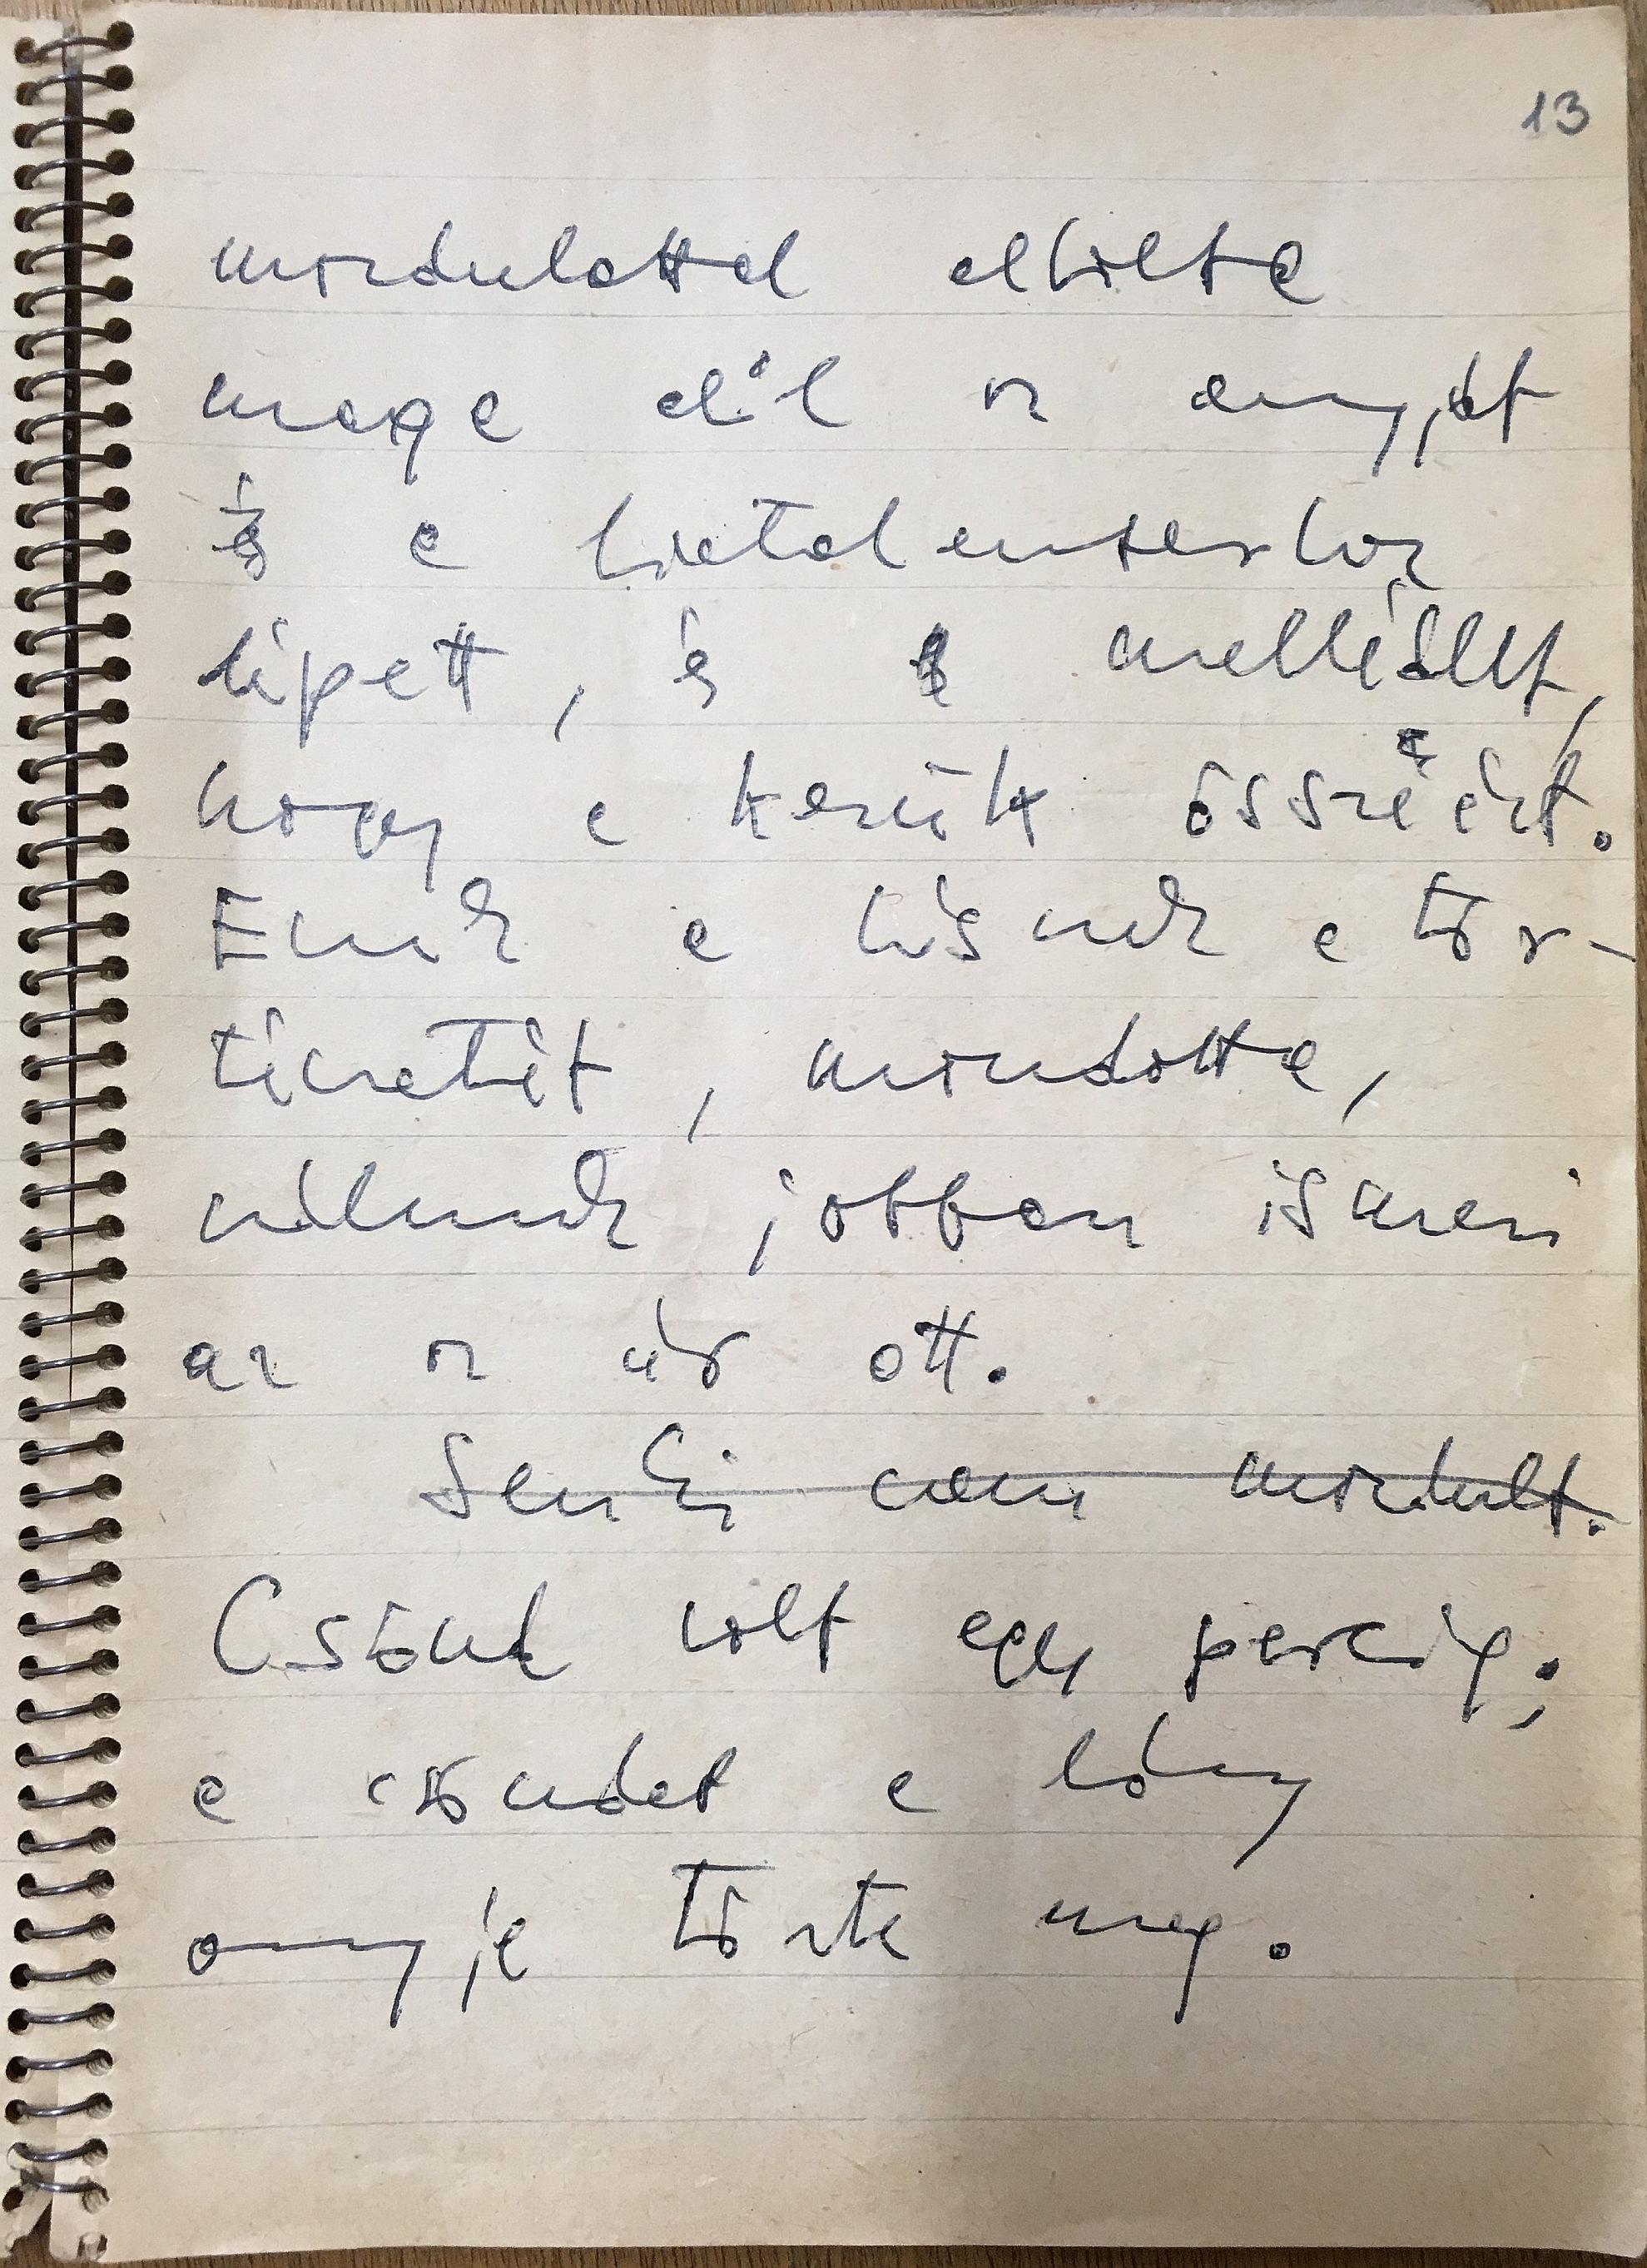 13
mozdulattal eltolta
maga elől az anyját
és a fiatalemberhez
lépett, és mellé állt,
hogy a kezük összeért.
Ennek a a tör-
ténetét, mondotta,
nálunk jobban ismeri
az az úr ott.
Senki nem mozdult.
Csönd volt egy percig;
a csöndet a lány
anyja törte meg.